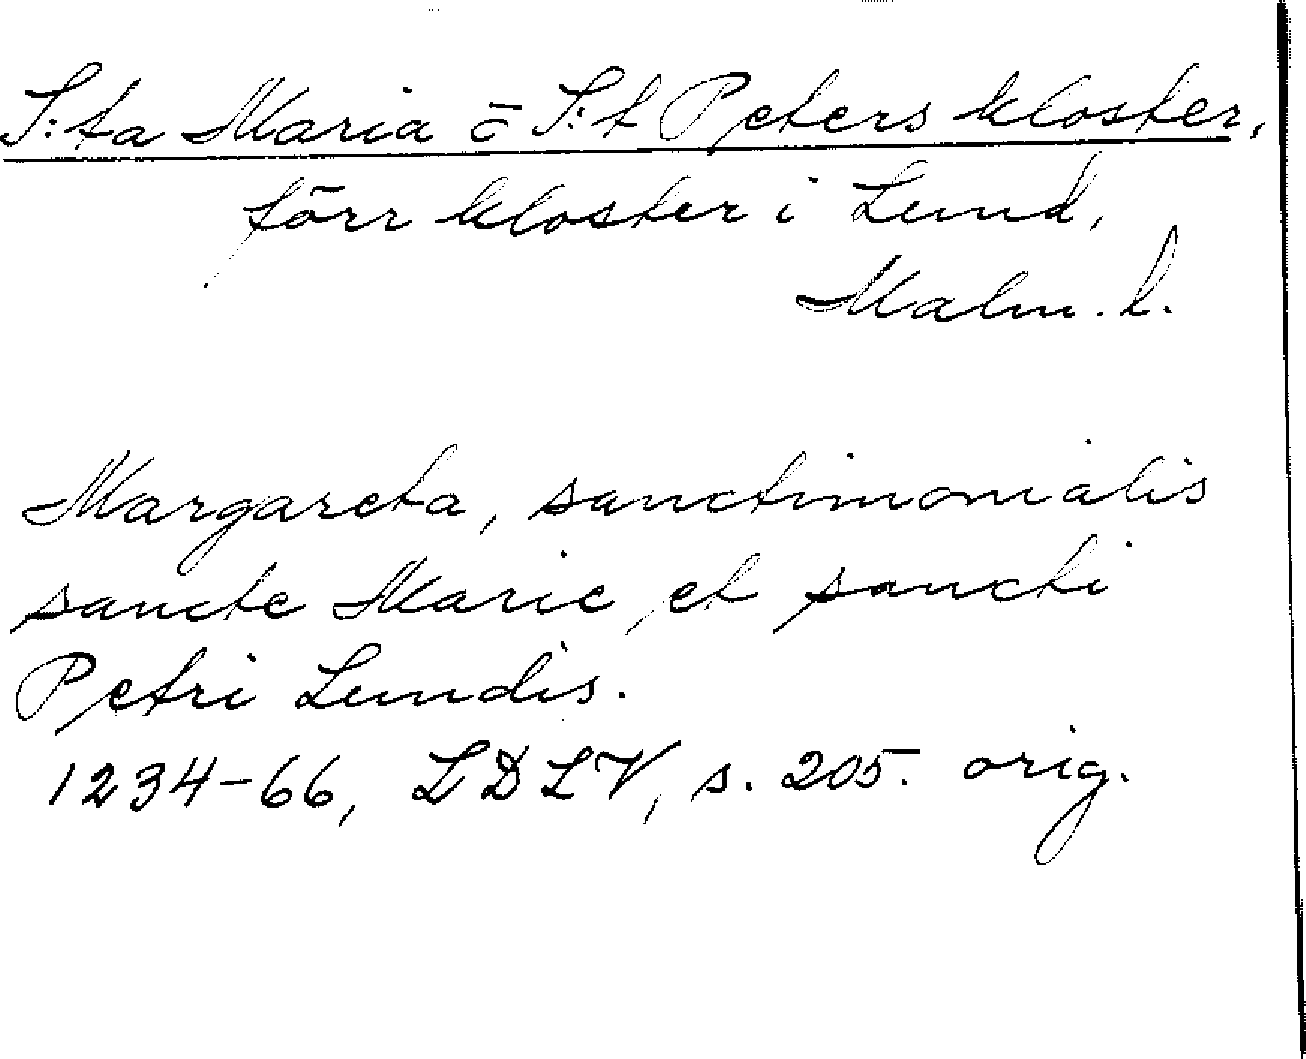 S:ta Maria o S:t Peters kloster,
förr kloster i Lund,
Malm. l.
Margareta, sanctimonialis
sancte Marie et sancti
Petri Lundis.
1234-66, LDLV, s. 205. orig.